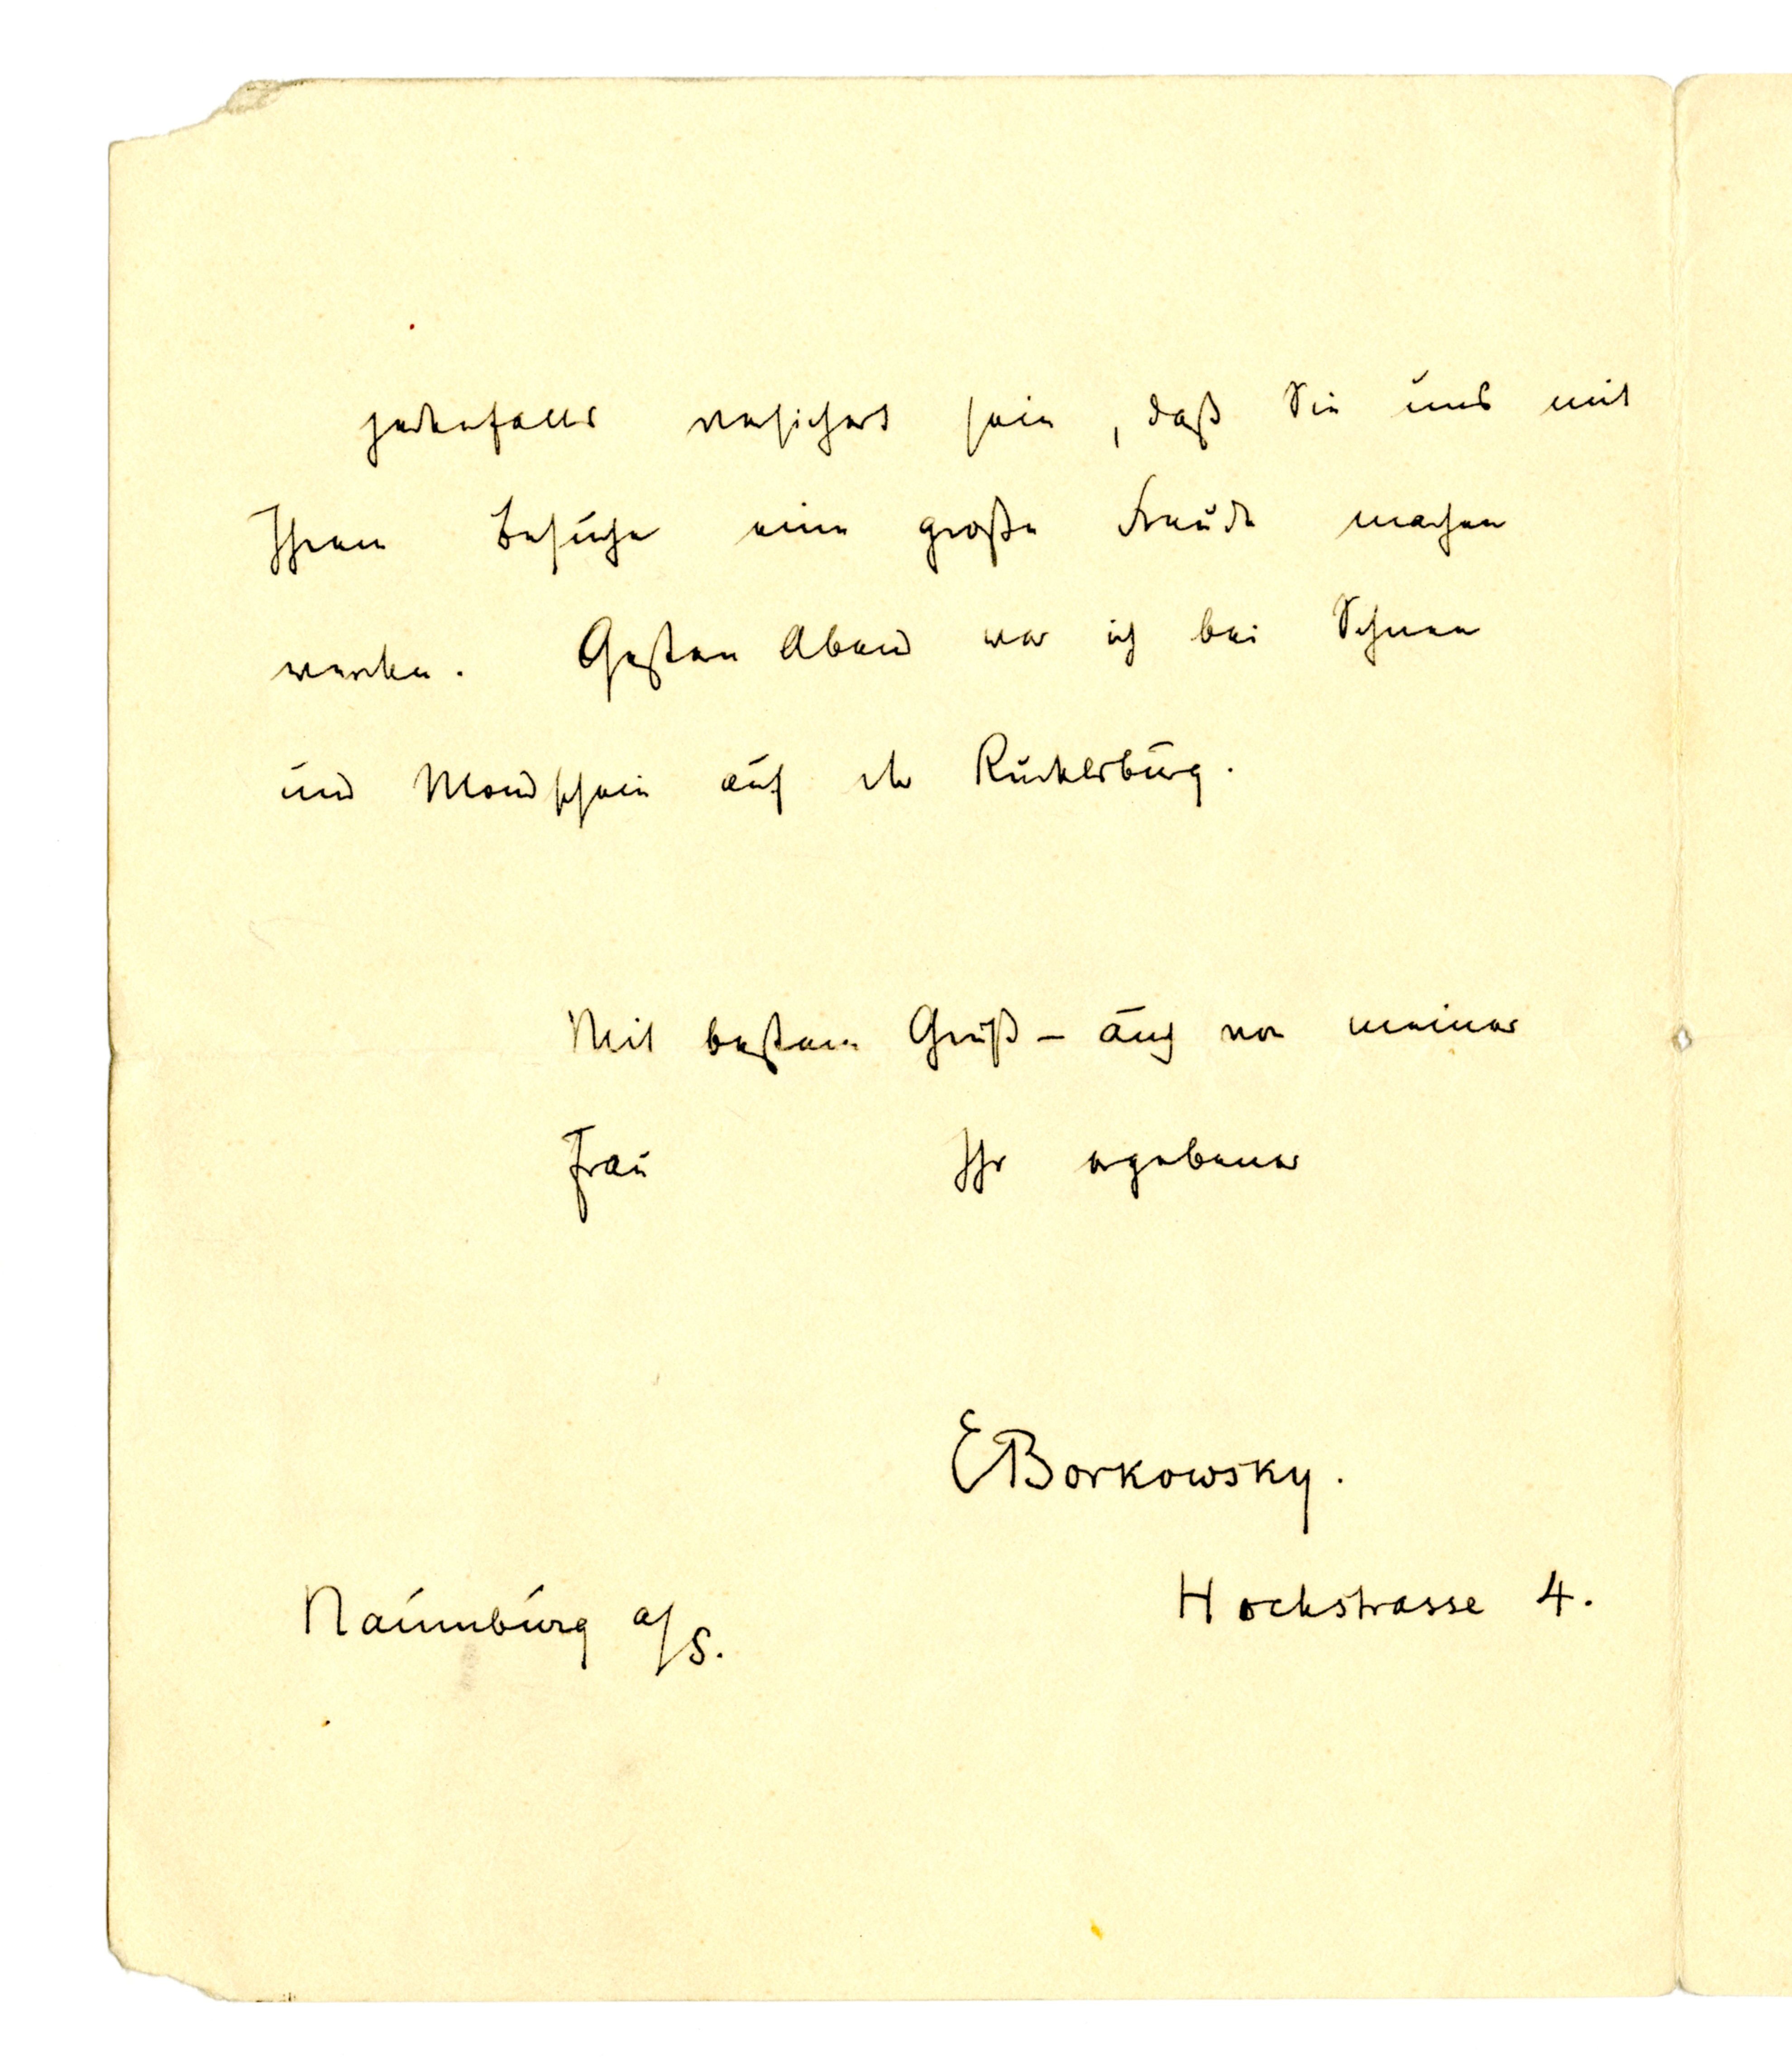 jedenfalls versichert sein, daß Sie uns mit
Ihrem Besuche eine große Freude machen
werden. Gestern Abend war ich bei Schnee
und Mondschein auf der Rudelsburg.
Mit bestem Gruß – auch von meiner
Frau Ihr ergebener
EBorkowsky.
Naumburg a/S. Hochstrasse 4.